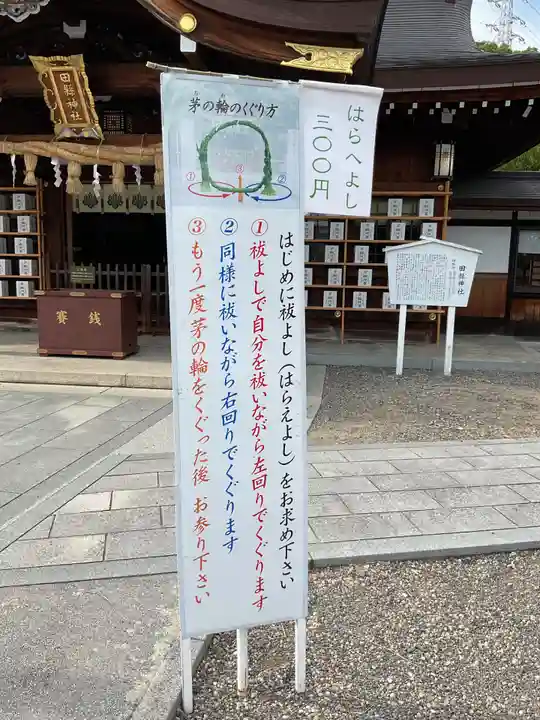 田縣神社
茅の輪のくぐり方
ち
わ
①
③
②
はじめに祓よし(はらえよし)をお求め下さい
①祓よしで自分を祓いながら左回りでくぐります
②同様に祓いながら右回りでくぐります
③もう一度茅の輪をくぐった後 お参り下さい
はらへよし
三〇〇円
賽銭
田縣神社